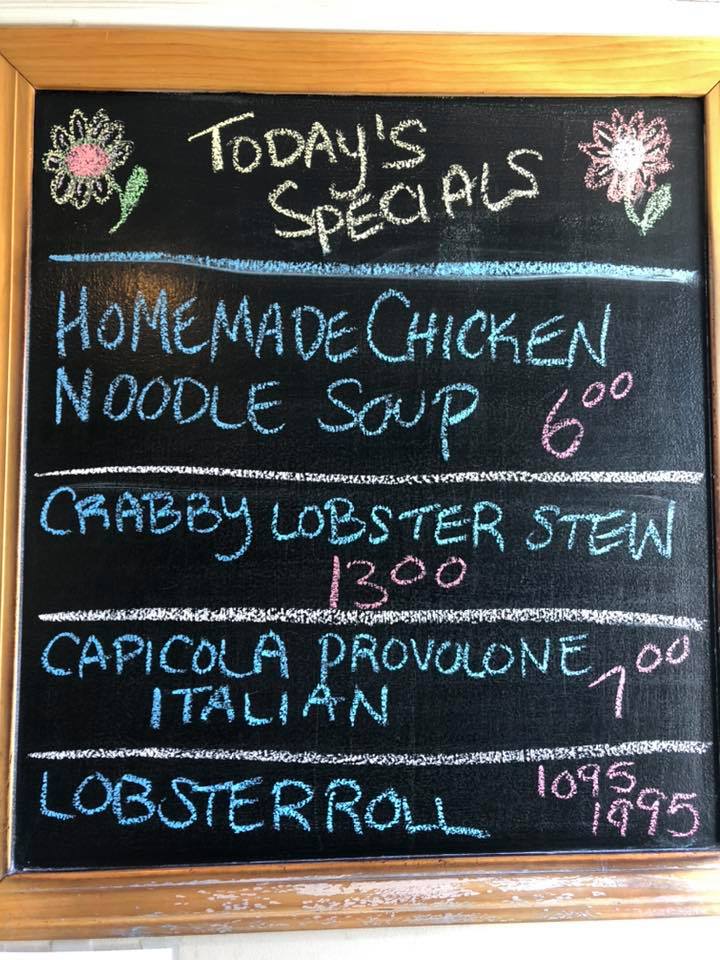 TODAY'S
SPECIALS
HOMEMADE CHICKEN
NOODLE SOUP 6.00
CRABBY LOBSTER STEW
13.00
CAPICOLA PROVOLONE 7.00
ITALIAN
LOBSTER ROLL 1095
1995